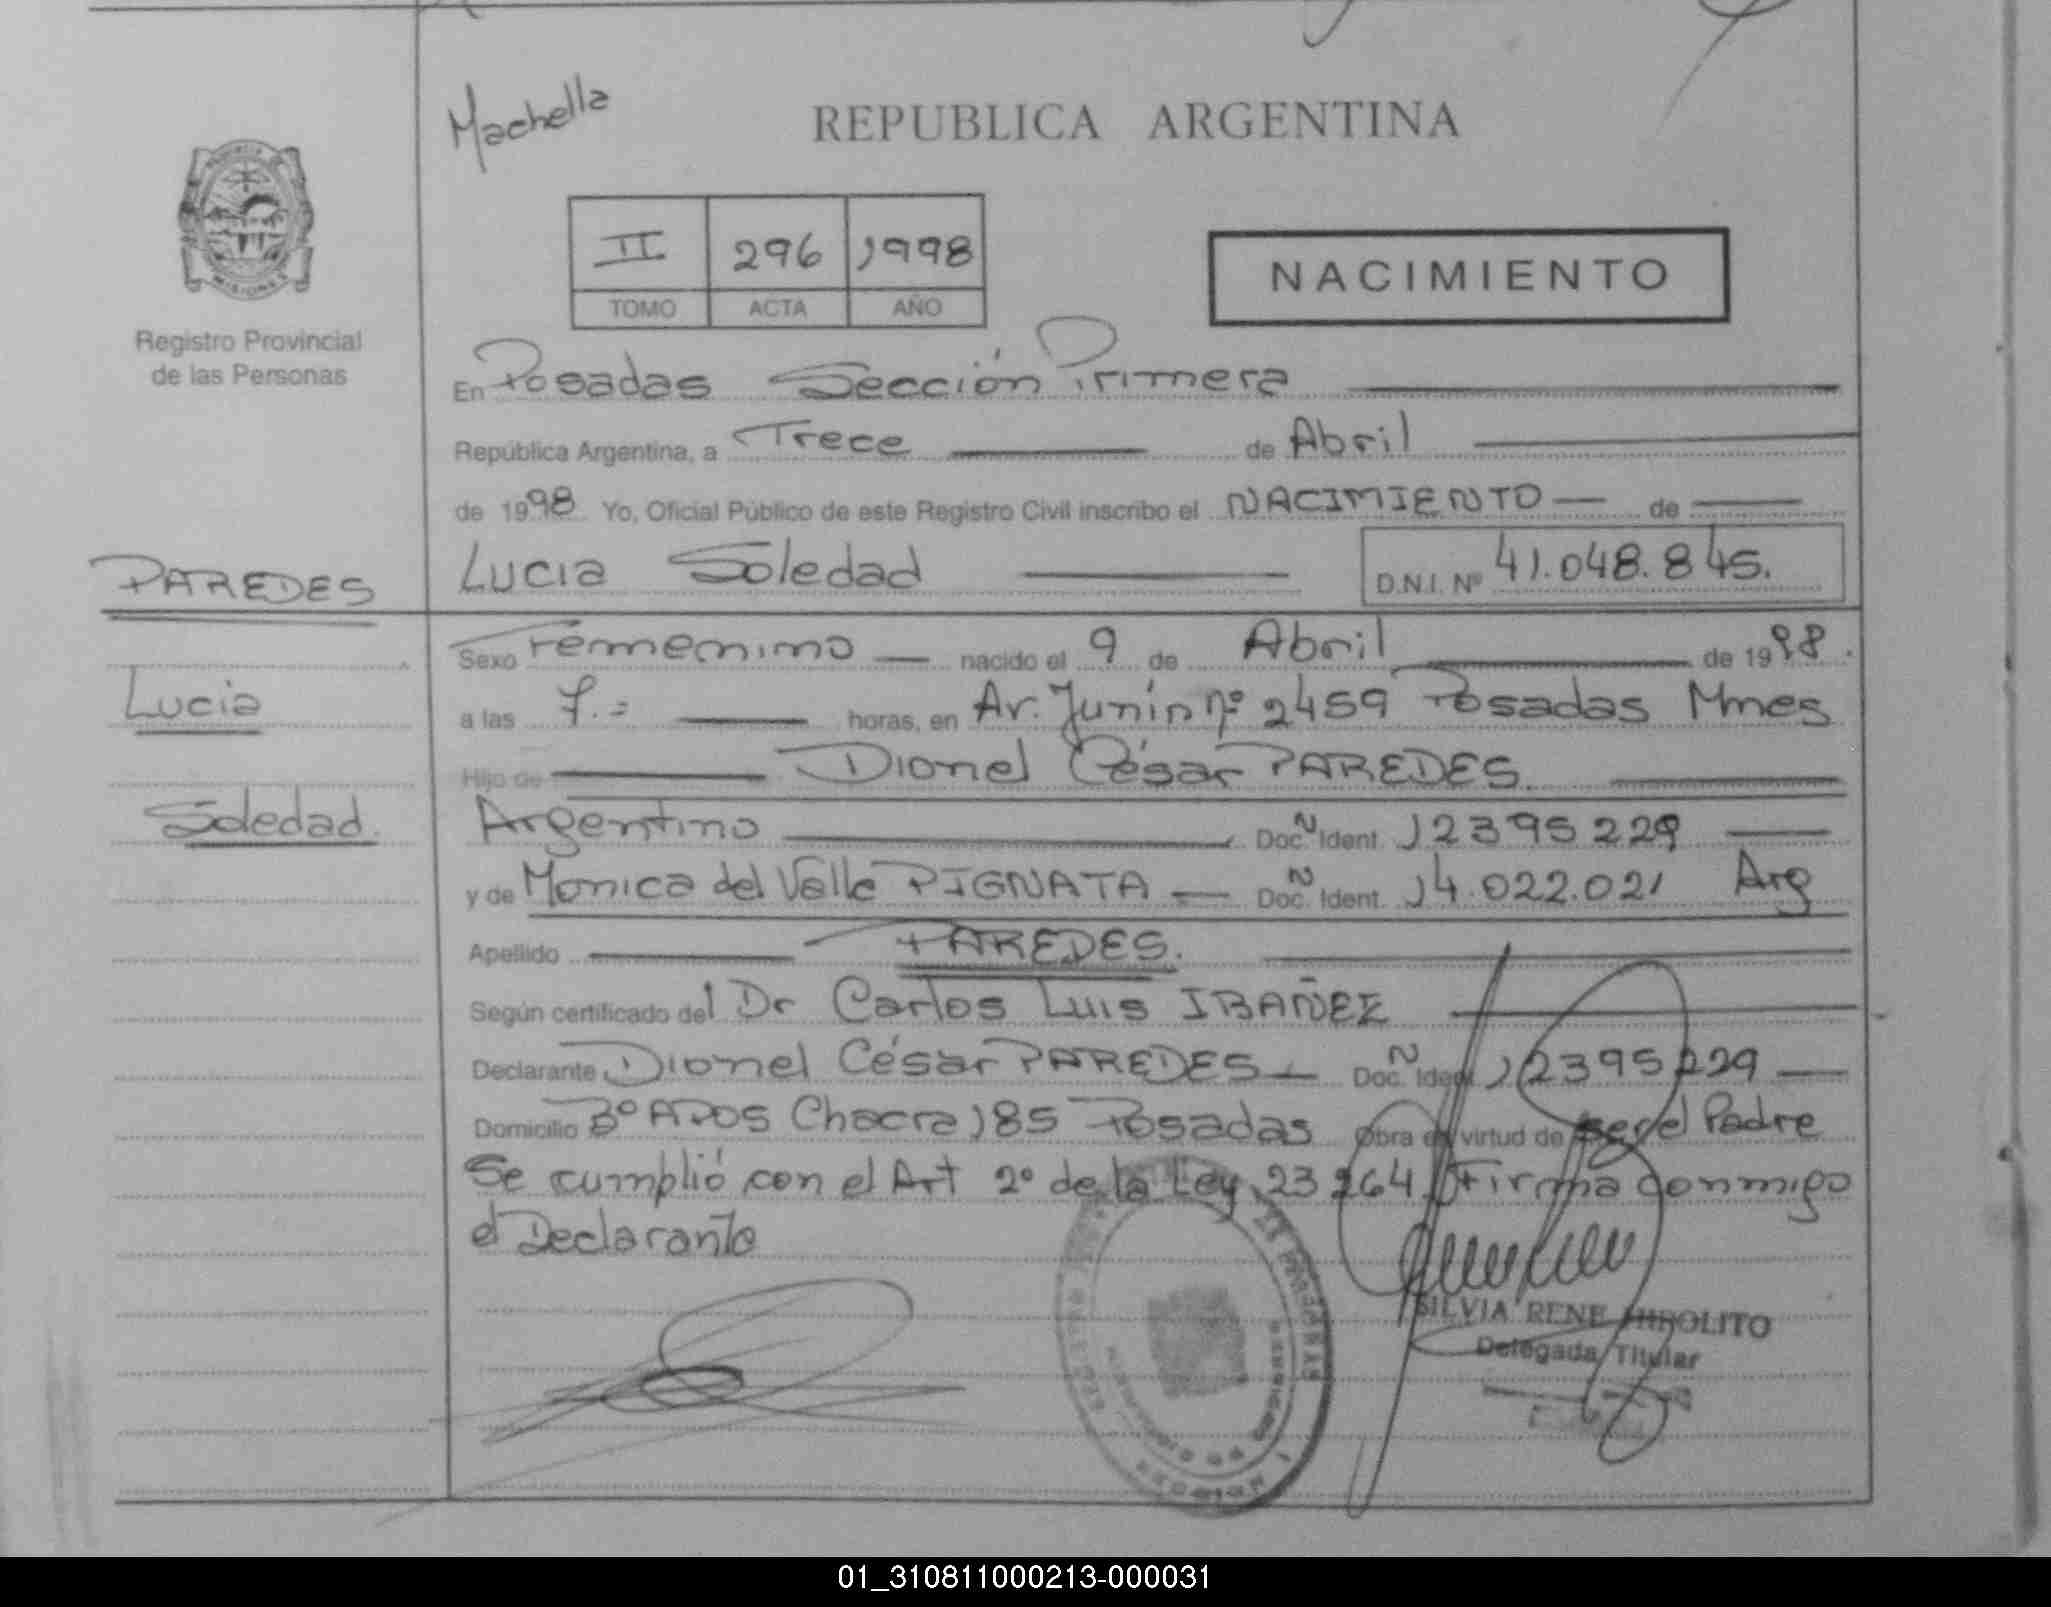 Machella
REPUBLICA ARGENTINA
PROVINCIA DE
MISIONES
II 296 1998
TOMO ACTA AÑO
NACIMIENTO
Registro Provincial
de las Personas
En Posadas Sección Primera
República Argentina, a Trece de Abril
de 1998 Yo, Oficial Público de este Registro Civil inscribo el NACIMIENTO de
PAREDES
Lucia Soledad D.N.I. Nº 41.048.845.
Sexo Femenino nacido el 9 de Abril de 1998.
Lucia
a las 7.= horas, en Av. Junín nº 2459 Posadas Mnes
Hijo de Dionel César PAREDES.
Soledad.
Argentino Doc. N Ident. 12395229
y de Monica del Valle PIGNATA Doc. N Ident. 14.022.021 Arg
Apellido PAREDES.
Según certificado del Dr Carlos Luis IBAÑEZ
Declarante Dionel César PAREDES Doc. N Ident 12395229
Domicilio Bº APOS Chacra 185 Posadas Obra en virtud de ser el Padre
Se cumplió con el Art 2º de la Ley 23264 Firma conmigo
el Declarante
SILVIA RENE HIPOLITO
Delegada Titular
01_310811000213-000031